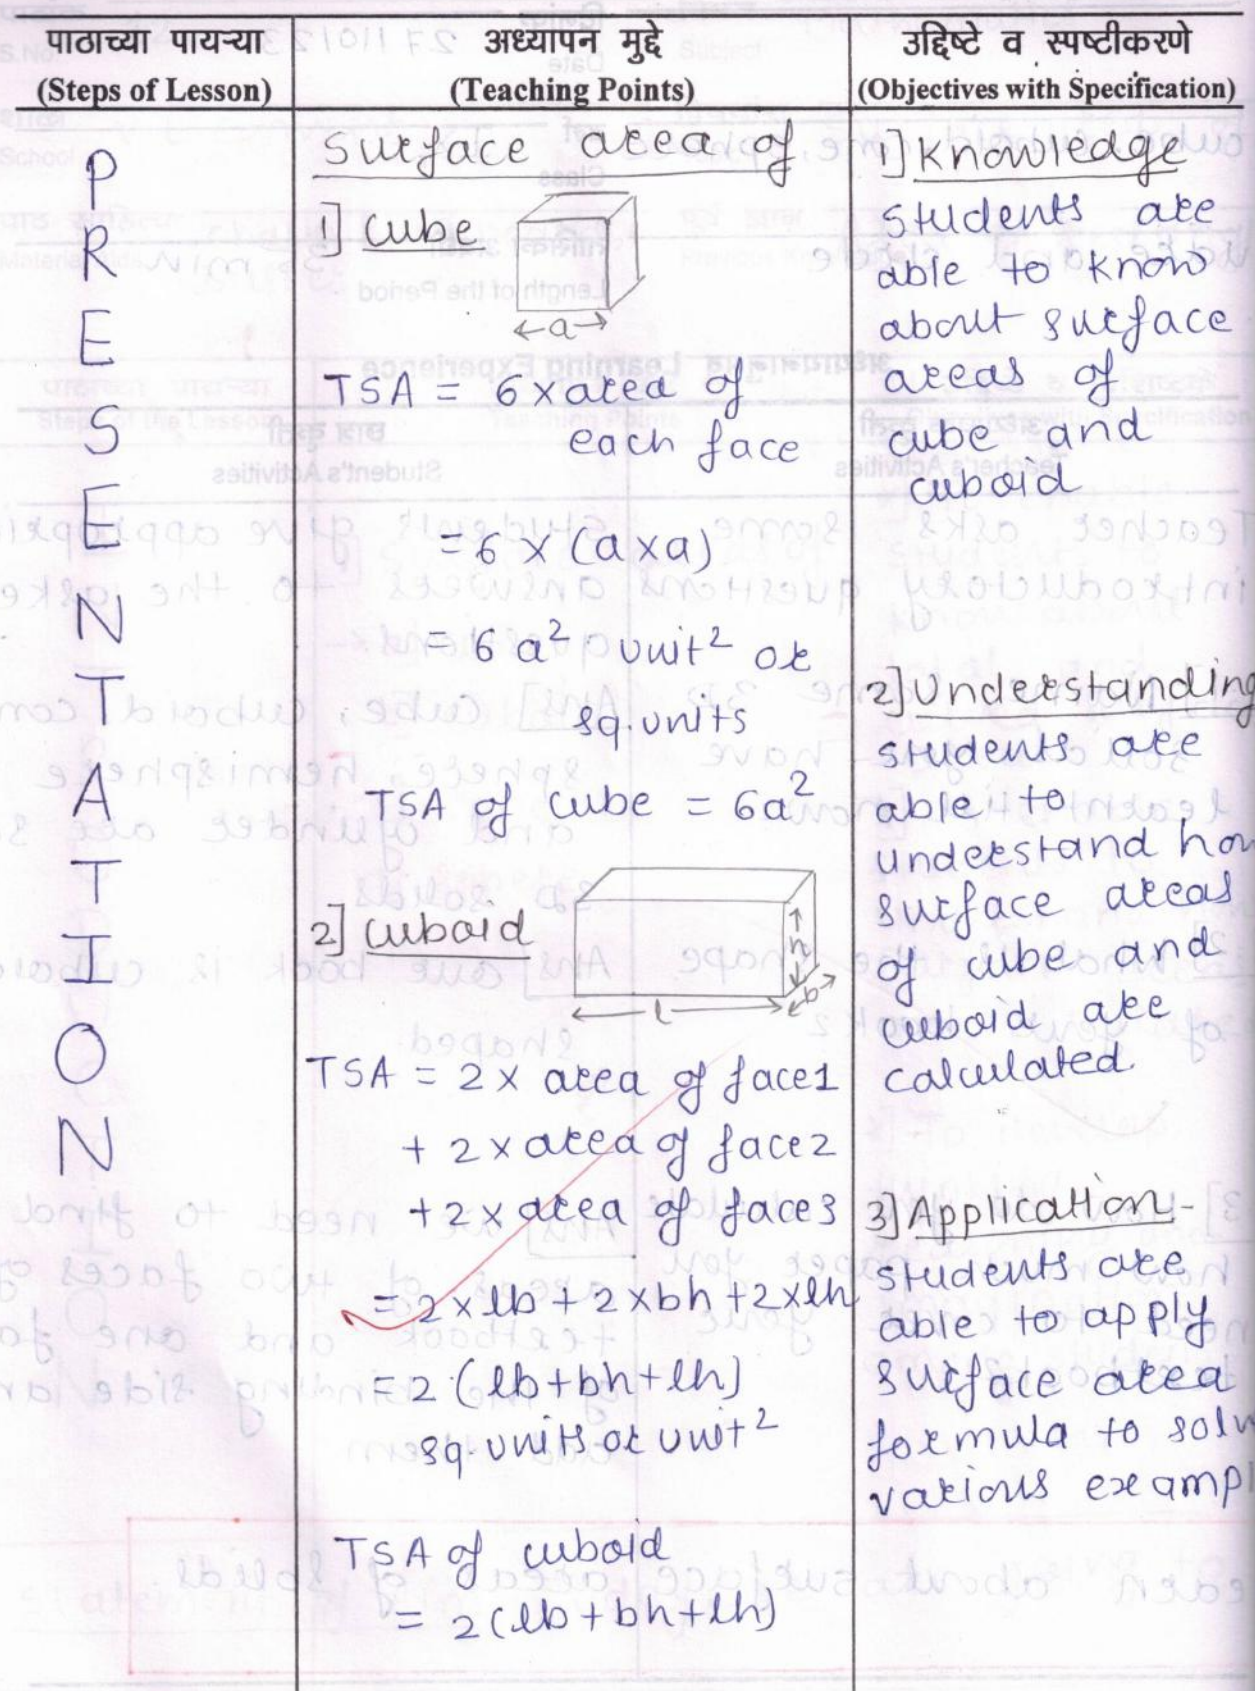 पाठाच्या पायऱ्या
(Steps of Lesson)
अध्यापन मुद्दे
(Teaching Points)
उद्दिष्टे व स्पष्टीकरणे
(Objectives with Specification)
P
R
E
S
E
N
T
A
T
I
O
N
Surface area of
1] Cube
a
TSA = 6 x area of
each face
= 6 x (a x a)
= 6 a² unit² or
sq. units
TSA of cube = 6a²
2] Cuboid
h
b
l
TSA = 2 x area of face1
+ 2 x area of face2
+ 2 x area of face3
= 2 x lb + 2 x bh + 2 x lh
= 2 (lb + bh + lh)
sq. units or unit²
TSA of cuboid
= 2 (lb + bh + lh)
1] Knowledge
students are
able to know
about surface
areas of
cube and
cuboid
2] Understanding
students are
able to
understand how
surface areas
of cube and
cuboid are
calculated.
3] Application-
students are
able to apply
surface area
formula to solv
various exampl